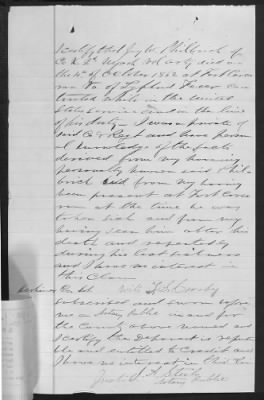 I certify that Jay L. Philbrick of
Co K 2d Regt Vol Cavly died on
the 4th of October 1862 at Fort Cara
van Ta of Typhoid Fever con
tracted while in the United
States service and in the line
of his duty I was a private of
said Co & Regt and have person
al knowledge of the facts
derived from my having
personally known said Phil
brick and from my having
been present at Fort
at the time he was
taken sick and from my
having seen him after his
death and repeatedly
during his last sickness
and I have no interest in
this Claim
Crosby
subscribed and sworn before
me a Notary Public in and for
the County above named and
I certify the Deponent is reputa
ble and entitled to Credit and
I have no interest in this Claim
Notary Public